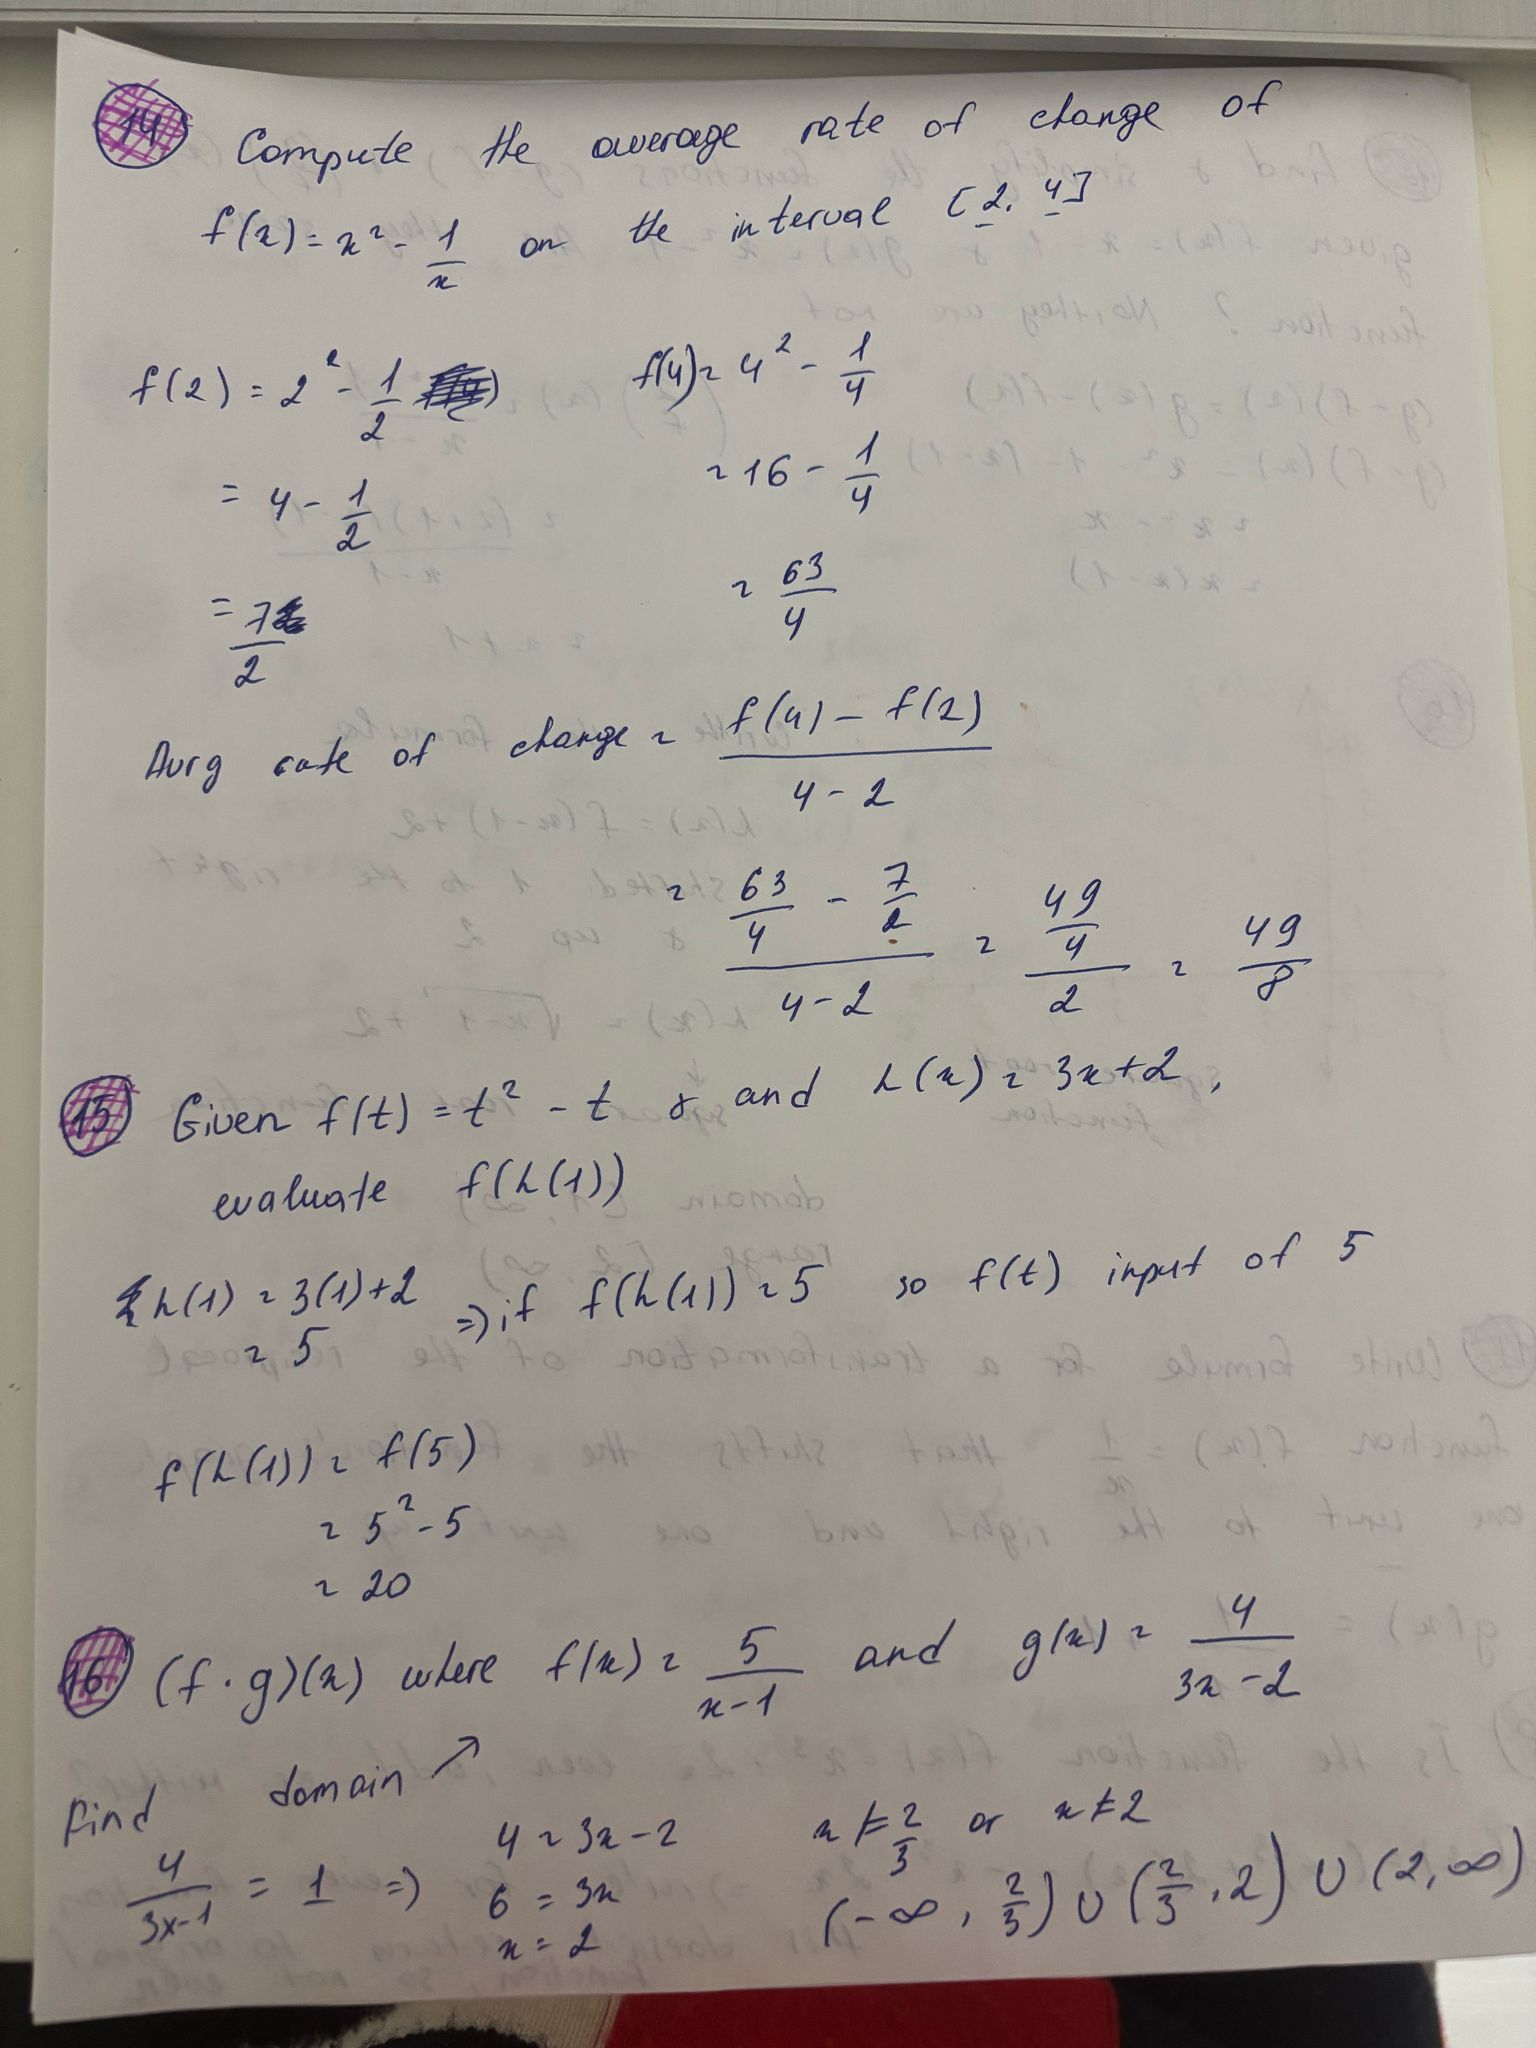 14 Compute the average rate of change of
f(x) = x² - 1/x on the interval [2, 4]
f(2) = 2² - 1/2    f(4) = 4² - 1/4
= 4 - 1/2    = 16 - 1/4
= 7/2    = 63/4
Avrg rate of change = (f(4) - f(2))/(4 - 2)
= (63/4 - 7/2)/(4 - 2) = (49/4)/2 = 49/8
15 Given f(t) = t² - t & and h(x) = 3x+2,
evaluate f(h(1))
h(1) = 3(1)+2 => if f(h(1)) = 5 so f(t) input of 5
= 5
f(h(1)) = f(5)
= 5² - 5
= 20
16 (f · g)(x) where f(x) = 5/(x-1) and g(x) = 4/(3x-2)
Find domain ↗
4/(3x-1) = 1 => 4 = 3x-2    x ≠ 2/3 or x ≠ 2
6 = 3x    (-∞, 2/3) ∪ (2/3, 2) ∪ (2, ∞)
x = 2